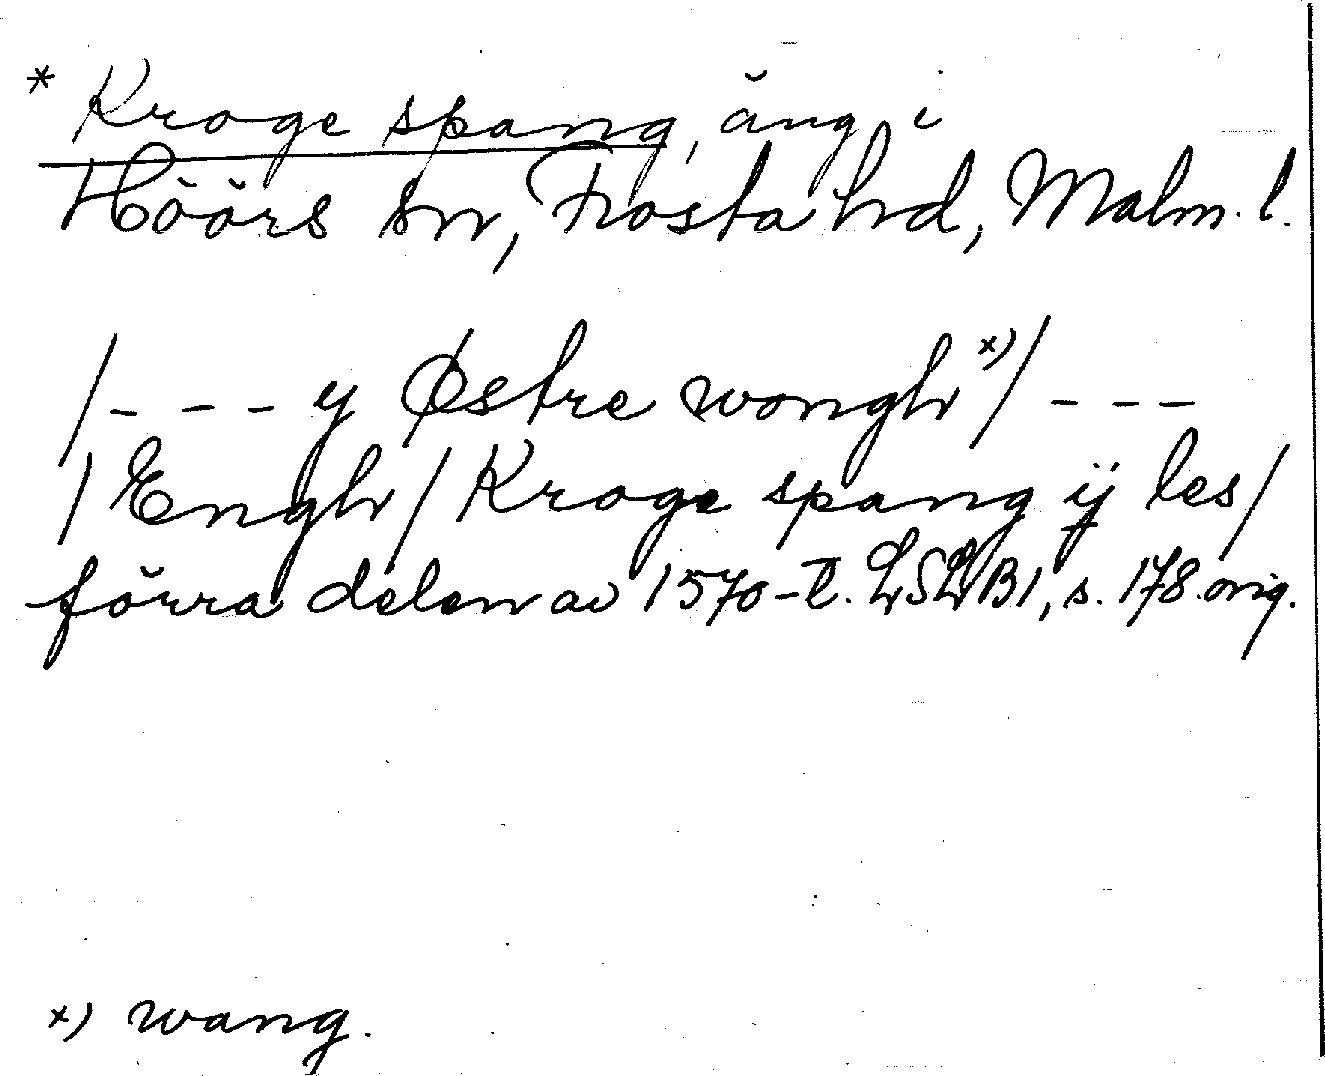 * Kroge spang, äng i
Höörs sn, Frosta hd, Malm. l.
/--- y Østre wongh x)/ ---
/Engh/ Kroge spang ij les/
förra delen av 1570-t. LSLB1, s. 178. orig.
x) wang.